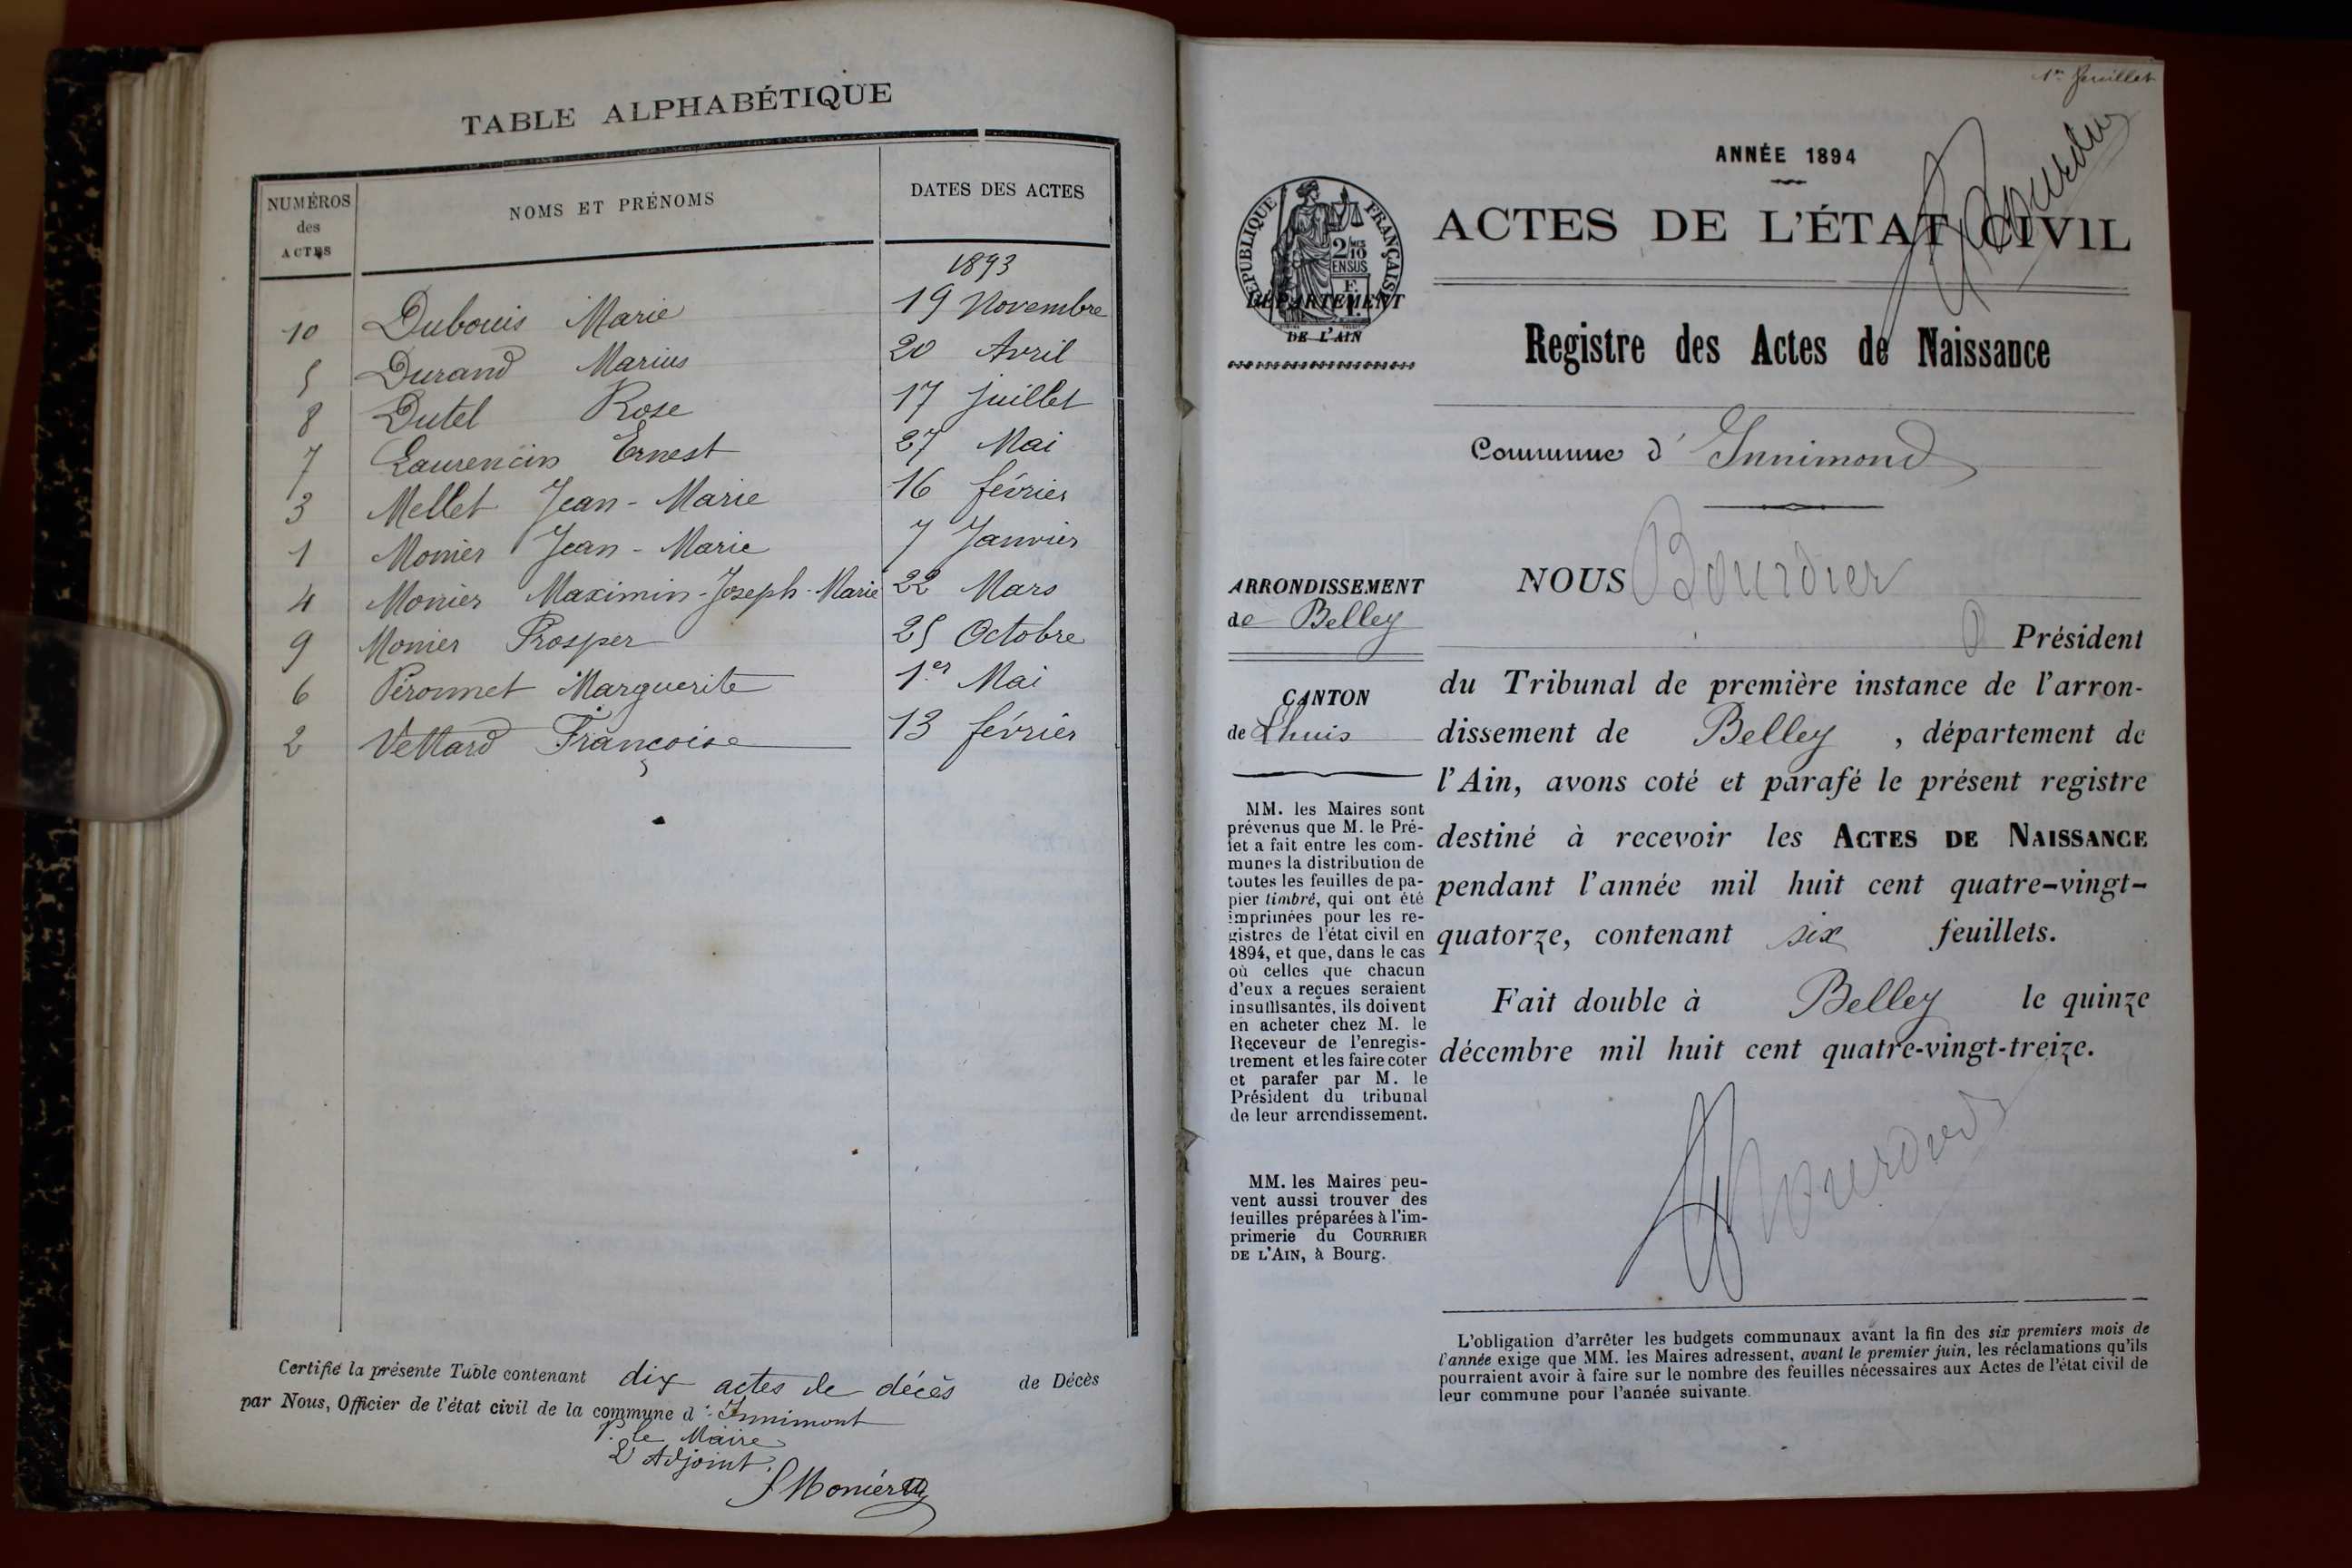 TABLE ALPHABÉTIQUE
NUMÉROS des ACTES NOMS ET PRÉNOMS DATES DES ACTES
1893
10 Dubouis Marie 19 Novembre
5 Durand Marius 20 Avril
8 Dutel Rose 17 juillet
7 Laurencin Ernest 27 Mai
3 Mellet Jean-Marie 16 février
1 Monier Jean-Marie 7 Janvier
4 Monier Maximin-Joseph-Marie 22 Mars
9 Monier Prosper 25 Octobre
6 Péronnet Marguerite 1er Mai
2 Vettard Françoise 13 février
Certifié la présente Table contenant dix actes de décès de Décès
par Nous, Officier de l'état civil de la commune d'Innimont
P. le Maire
L'Adjoint
Monier
1er feuillet
ANNÉE 1894
Bourdier
ACTES DE L'ÉTAT CIVIL
RÉPUBLIQUE FRANÇAISE
2/10
EN SUS
DÉPARTEMENT
DE L'AIN
Registre des Actes de Naissance
Commune d'Innimond
ARRONDISSEMENT
de Belley
CANTON
de Lhuis
MM. les Maires sont
prévenus que M. le Pré-
fet a fait entre les com-
munes la distribution de
toutes les feuilles de pa-
pier timbré, qui ont été
imprimées pour les re-
gistres de l'état civil en
1894, et que, dans le cas
où celles que chacun
d'eux a reçues seraient
insuffisantes, ils doivent
en acheter chez M. le
Receveur de l'enregis-
trement et les faire coter
et parafer par M. le
Président du tribunal
de leur arrondissement.
MM. les Maires peu-
vent aussi trouver des
feuilles préparées à l'im-
primerie du COURRIER
DE L'AIN, à Bourg.
NOUS Bourdier
Président
du Tribunal de première instance de l'arron-
dissement de Belley, département de
l'Ain, avons coté et parafé le présent registre
destiné à recevoir les ACTES DE NAISSANCE
pendant l'année mil huit cent quatre-vingt-
quatorze, contenant six feuillets.
Fait double à Belley le quinze
décembre mil huit cent quatre-vingt-treize.
Bourdier
L'obligation d'arrêter les budgets communaux avant la fin des six premiers mois de
l'année exige que MM. les Maires adressent, avant le premier juin, les réclamations qu'ils
pourraient avoir à faire sur le nombre des feuilles nécessaires aux Actes de l'état civil de
leur commune pour l'année suivante.